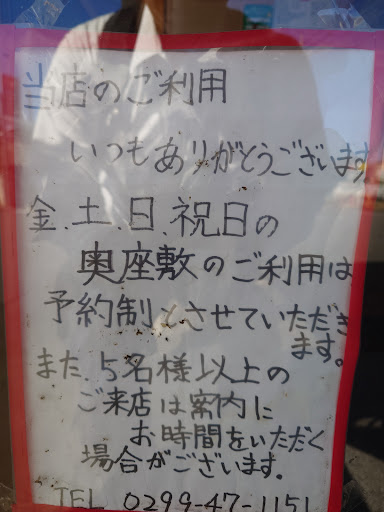 当店のご利用
いつもありがとうございます
金.土.日.祝日の
奥座敷のご利用は
予約制とさせていただき
ます。
また.5名様以上の
ご来店は案内に
お時間をいただく
場合がございます.
TEL 0299-47-1151